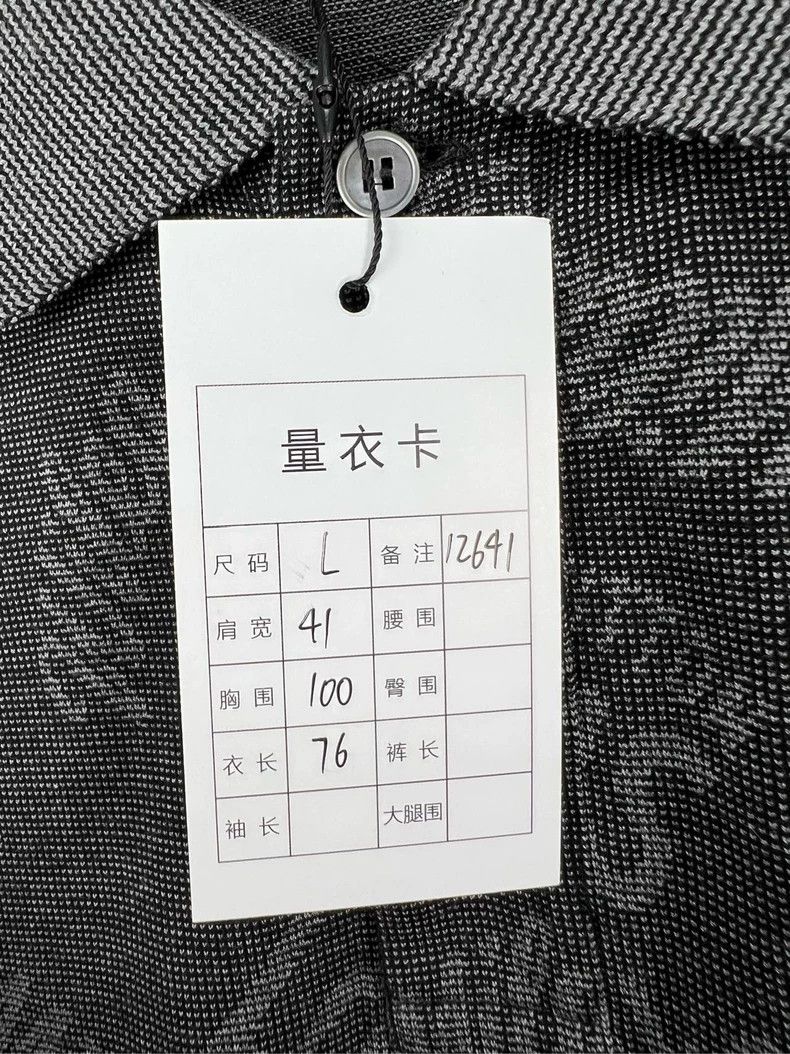 量衣卡
尺码 L 备注 12641
肩宽 41 腰围
胸围 100 臀围
衣长 76 裤长
袖长 大腿围